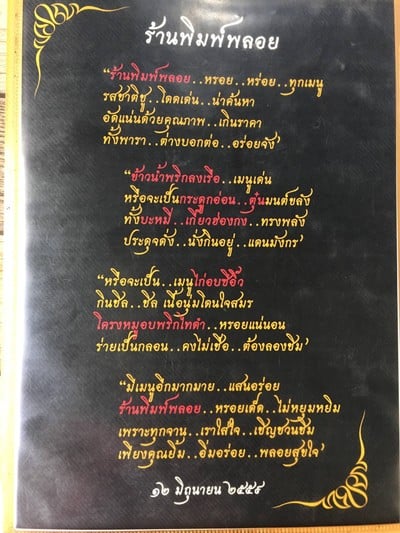 ร้านพิมพ์พลอย
“ร้านพิมพ์พลอย..หรอย..หร่อย..ทุกเมนู
รสชาติชู..โดดเด่น..น่าค้นหา
อัดแน่นด้วยคุณภาพ..เกินราคา
ทั้งพารา..ต่างบอกต่อ..อร่อยจัง’
“ข้าวน้ำพริกลงเรือ..เมนูเด่น
หรือจะเป็นกระดูกอ่อน..ตุ๋นมนต์ขลัง
ทั้งบะหมี่..เกี๊ยวฮ่องกง..ทรงพลัง
ประดุจดั่ง..นั่งกินอยู่..แดนมังกร’
“หรือจะเป็น..เมนูไก่อบซีอิ๊ว
กินชิล..ชิล เนื้อนุ่มโดนใจสมร
โครงหมูอบพริกไทดำ..หรอยแน่นอน
ร่ายเป็นกลอน..คงไม่เชื่อ..ต้องลองชิม’
“มีเมนูอีกมากมาย..แสนอร่อย
ร้านพิมพ์พลอย..หรอยเด็ด..ไม่หยุมหยิม
เพราะทุกจาน..เราใส่ใจ..เชิญชวนชิม
เพียงคุณยิ้ม..อิ่มอร่อย..พลอยสุขใจ’
๑๒ มิถุนายน ๒๕๕๙